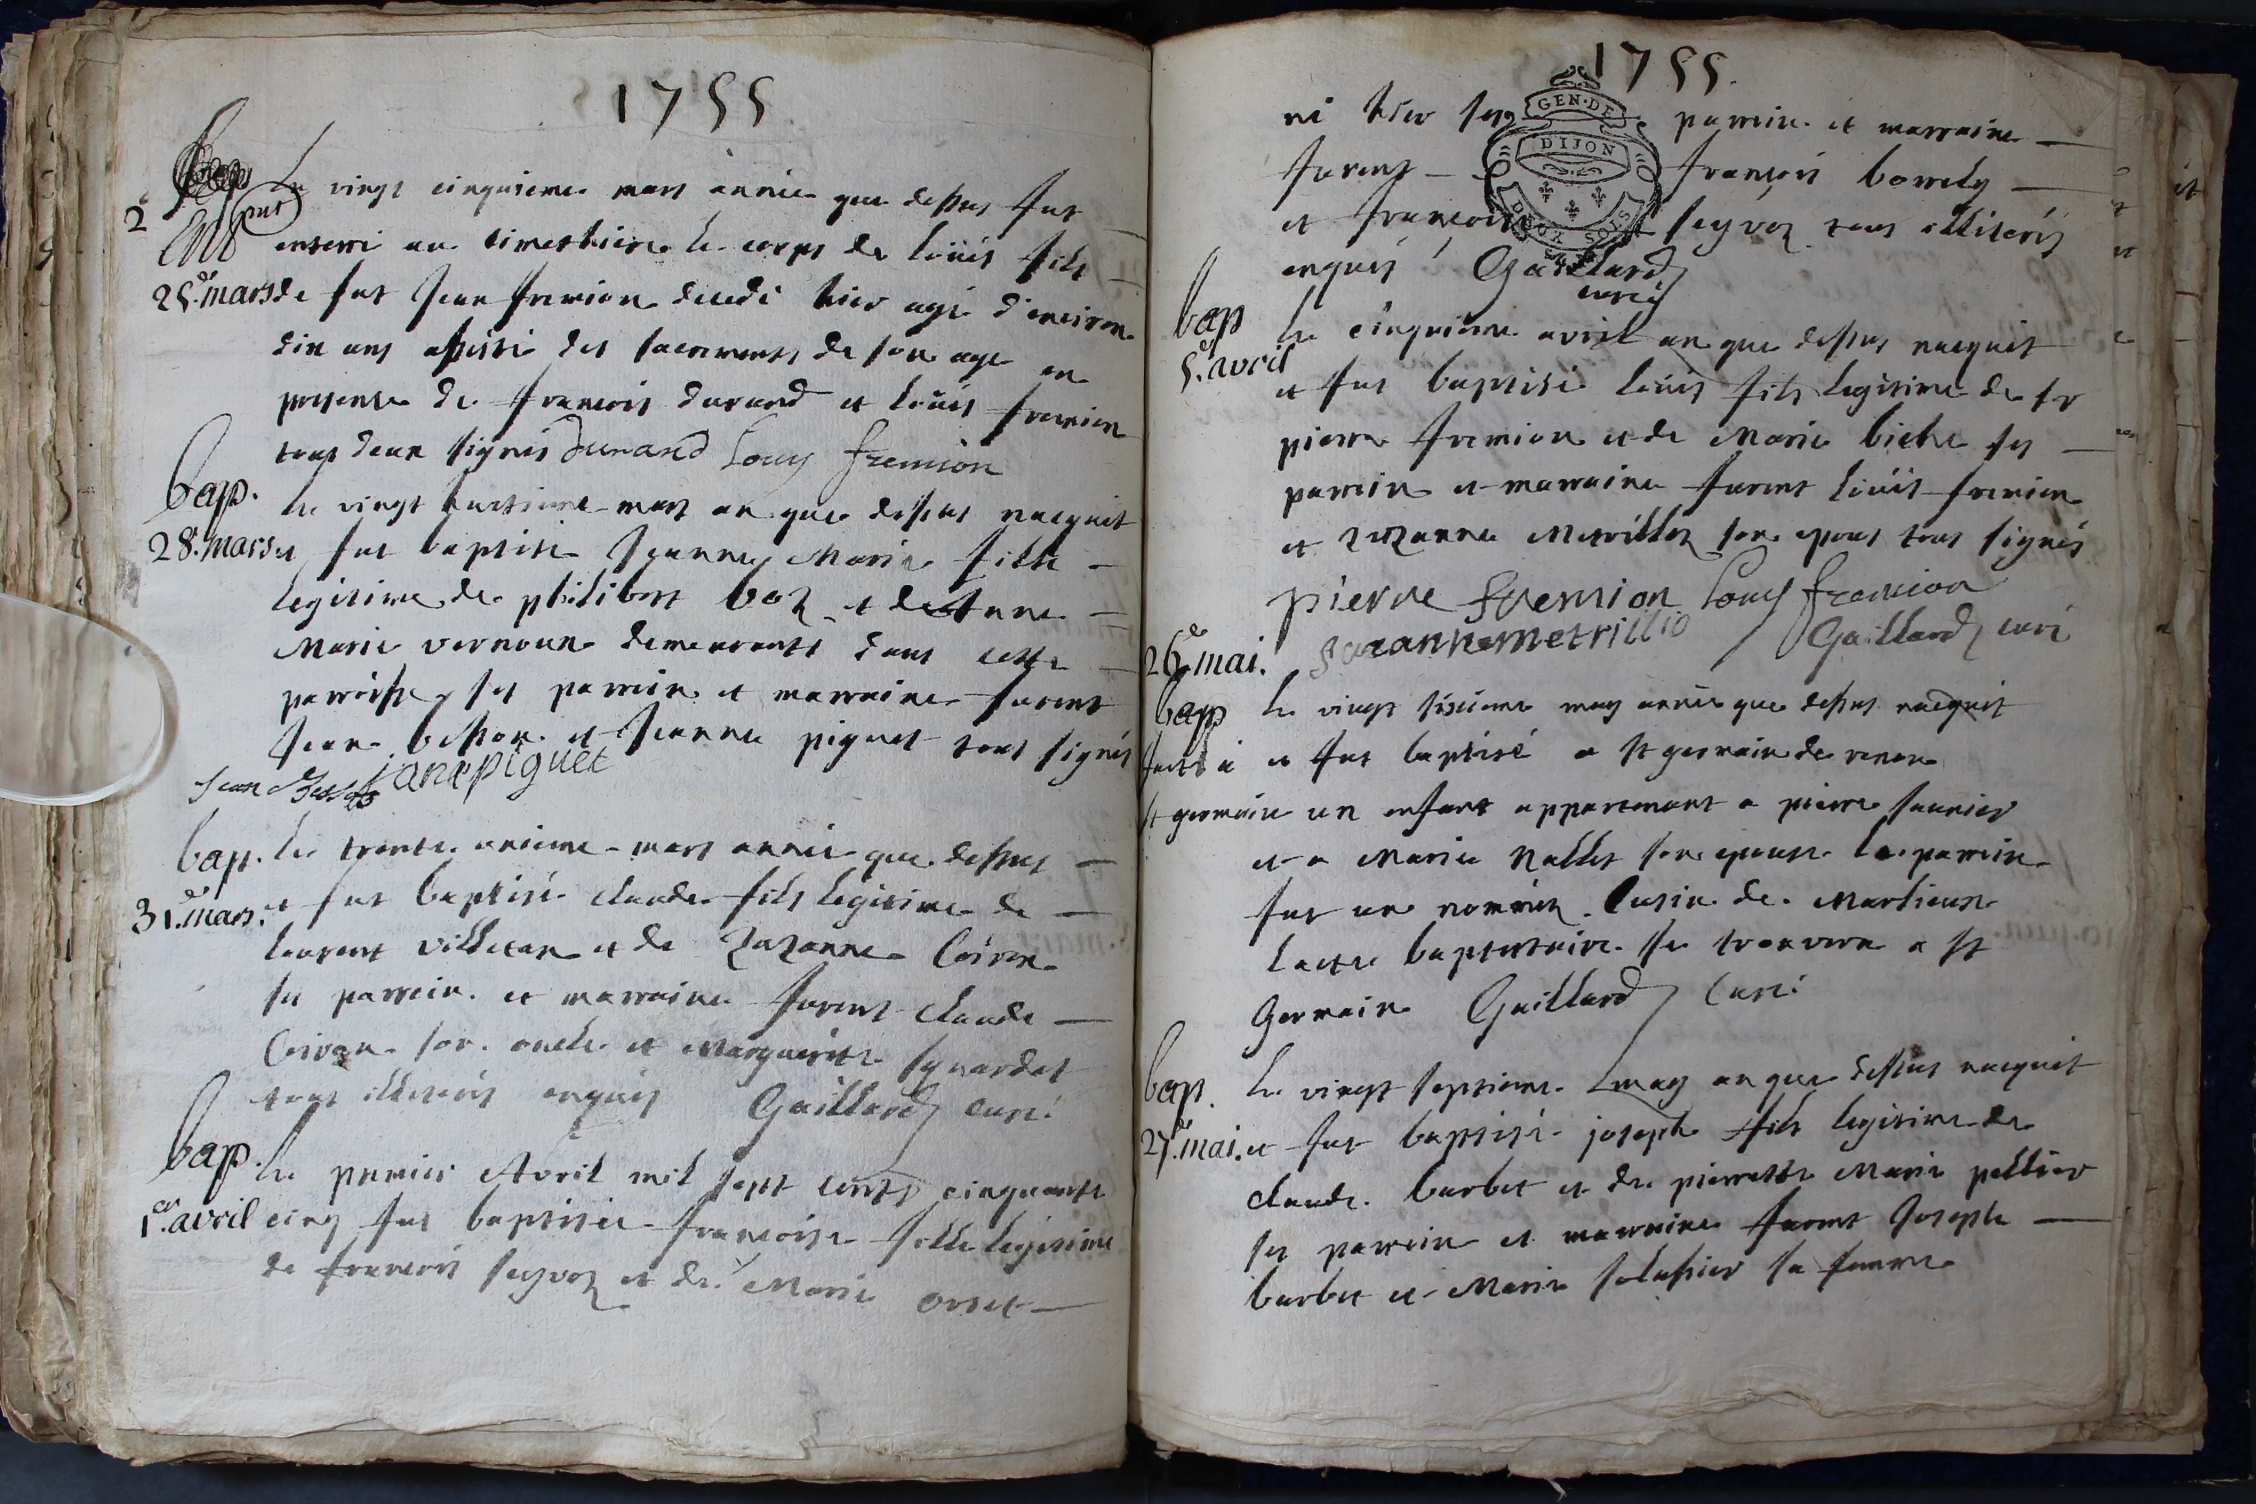 1755
Le vingt cinquieme mars année que dessus fut
2
enterré au cimethiere le corps de loüis fils
25e. mars de fut Jean fremion decedé hier agé d'environ
dix ans assisté des sacrements de son age en
presence de francois durand et loüis fremion
tous deux signés Durand Louy fremion
bap.
Le vingt huitieme mars an que dessus nacquit
28e. mars et fut baptisée Jeanne Marie fille
legitime de philibert boz et de Anne
Marie vernoux demeurants dans cette
parroisse, ses parrein et marraine furent
Jean besson et Jeanne piguet tous signés
Jean janepiguet
bap. Le trente unieme mars année que dessus
31e. mars. et fut baptisé claude fils legitime de
laurent et de Zuzanne Coiron
ses parrein et marraine furent claude
Coiron son oncle et Marguerite
tous illiterés enquis Gaillard curé
bap.
Le premier Avril mil sept cents cinquante
1er. avril cinq fut baptisée francoise fille legitime
de francois seyvoz et de Marie orset
1755.
né hier ses parrein et marraine
GEN. DE
DIJON
DEUX SOLS
furent francois borrely
et francoise seyvoz tous illiterés
enquis Gaillard
curé
bap
Le cinquieme avril an que dessus nacquit
5e. avril
et fut baptisé loüis fils legitime de sr
pierre fremion et de Marie biche ses
parrein et marraine furent loüis fremion
et Zuzanne Metrilloz son epouse tous signés
pierre fremion Louy fremion
suzannemetrillio Gaillard curé
26e mai.
bap Le vingt sixieme may année que dessus nacquit
faits à et fut baptisé a st germain de renon
st germain un enfant appartenant a pierre saunier
et a Marie Nallet son epouse le parrein
fut un nommez Cusin de Marlieux
lacte baptistaire se trouvera a st
Germain Gaillard Curé
bap. Le vingt septieme may an que dessus nacquit
27e. mai. et fut baptisé joseph fils legitime de
claude burbet et de pierrette Marie pellier
ses parrein et marraine furent Joseph
burbet et Marie sa femme